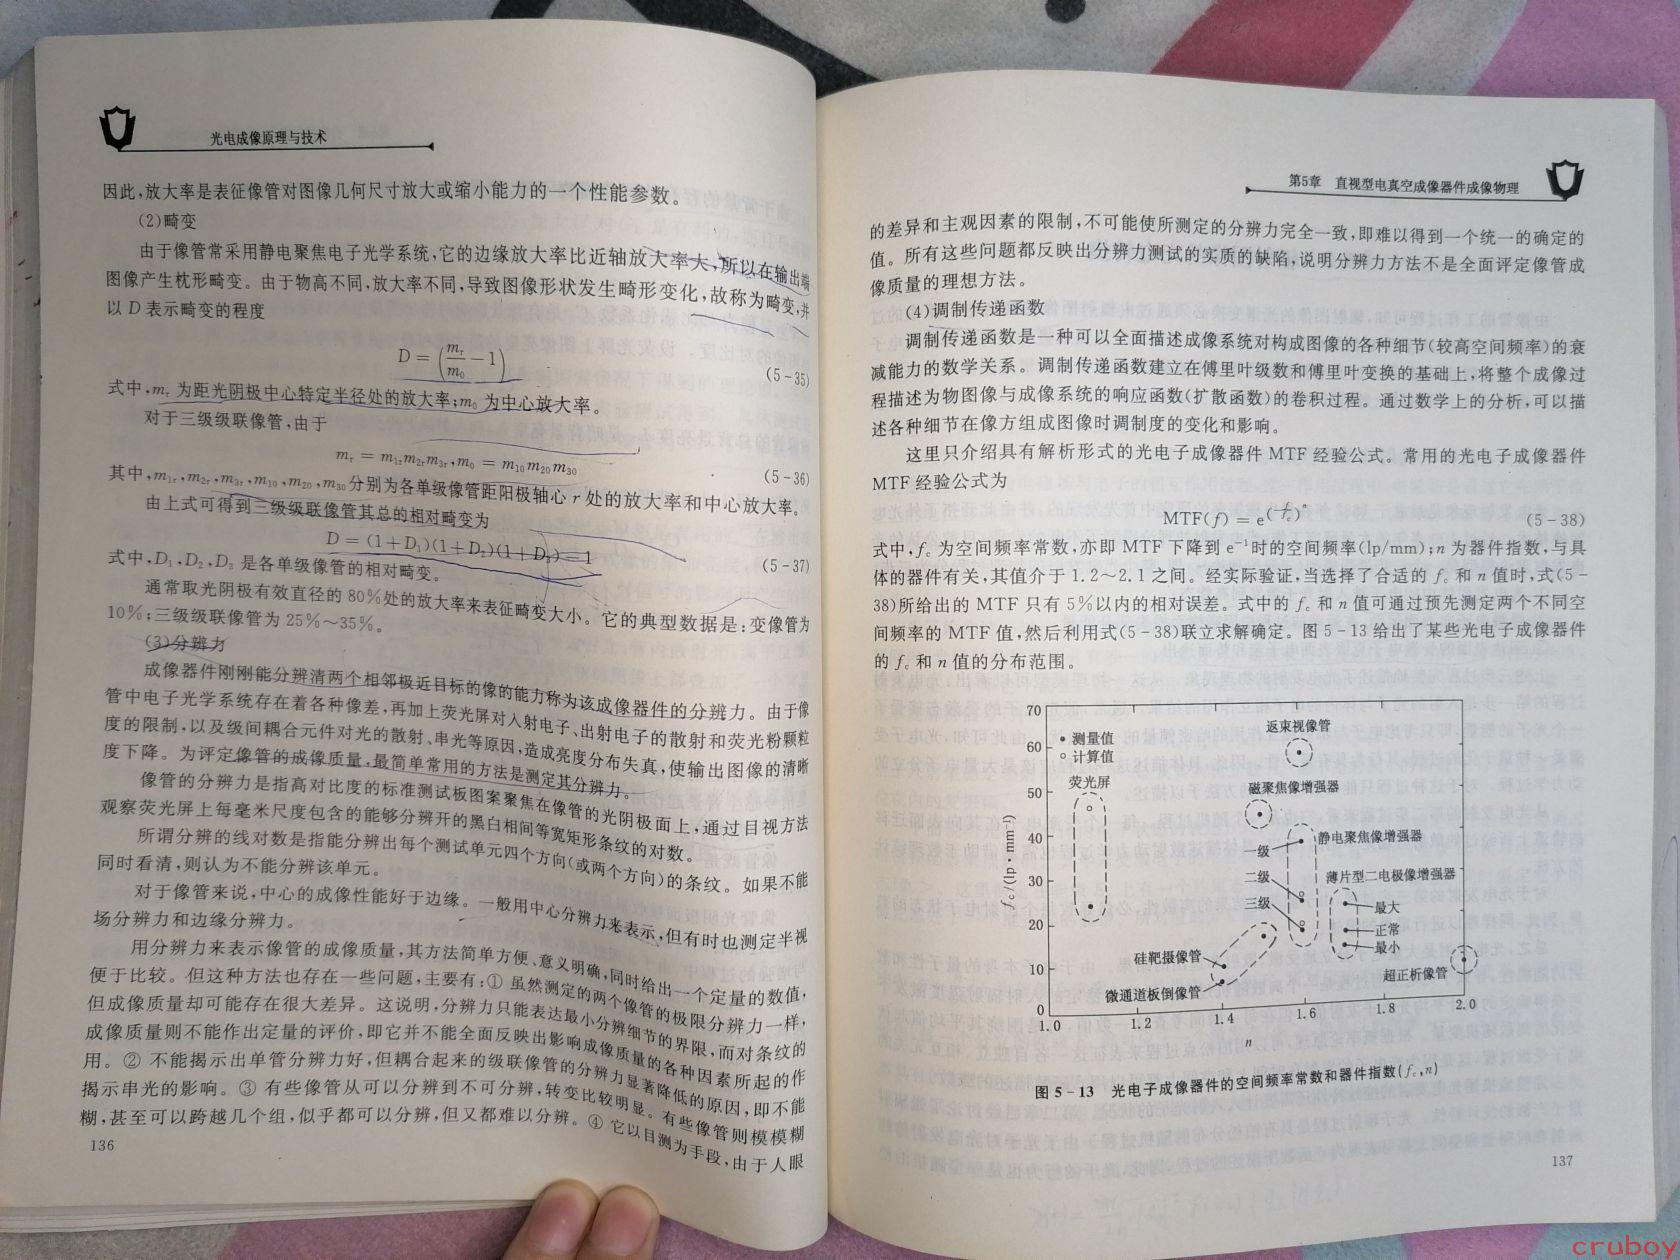 光电成像原理与技术
因此,放大率是表征像管对图像几何尺寸放大或缩小能力的一个性能参数。
(2)畸变
由于像管常采用静电聚焦电子光学系统,它的边缘放大率比近轴放大率大,所以在输出端
图像产生枕形畸变。由于物高不同,放大率不同,导致图像形状发生畸形变化,故称为畸变,并
以 D 表示畸变的程度
D = (mᵣ/m₀ − 1) (5-35)
式中,mᵣ 为距光阴极中心特定半径处的放大率;m₀ 为中心放大率。
对于三级级联像管,由于
mᵣ = m₁ᵣm₂ᵣm₃ᵣ,m₀ = m₁₀m₂₀m₃₀ (5-36)
其中,m₁ᵣ,m₂ᵣ,m₃ᵣ,m₁₀,m₂₀,m₃₀分别为各单级像管距阳极轴心 r 处的放大率和中心放大率。
由上式可得到三级级联像管其总的相对畸变为
D = (1+D₁)(1+D₂)(1+D₃)−1 (5-37)
式中,D₁,D₂,D₃ 是各单级像管的相对畸变。
通常取光阴极有效直径的 80%处的放大率来表征畸变大小。它的典型数据是:变像管为
10%;三级级联像管为 25%～35%。
(3)分辨力
成像器件刚刚能分辨清两个相邻极近目标的像的能力称为该成像器件的分辨力。由于像
管中电子光学系统存在着各种像差,再加上荧光屏对入射电子、出射电子的散射和荧光粉颗粒
度的限制,以及级间耦合元件对光的散射、串光等原因,造成亮度分布失真,使输出图像的清晰
度下降。为评定像管的成像质量,最简单常用的方法是测定其分辨力。
像管的分辨力是指高对比度的标准测试板图案聚焦在像管的光阴极面上,通过目视方法
观察荧光屏上每毫米尺度包含的能够分辨开的黑白相间等宽矩形条纹的对数。
所谓分辨的线对数是指能分辨出每个测试单元四个方向(或两个方向)的条纹。如果不能
同时看清,则认为不能分辨该单元。
对于像管来说,中心的成像性能好于边缘。一般用中心分辨力来表示,但有时也测定半视
场分辨力和边缘分辨力。
用分辨力来表示像管的成像质量,其方法简单方便、意义明确,同时给出一个定量的数值,
便于比较。但这种方法也存在一些问题,主要有:① 虽然测定的两个像管的极限分辨力一样,
但成像质量却可能存在很大差异。这说明,分辨力只能表达最小分辨细节的界限,而对条纹的
成像质量则不能作出定量的评价,即它并不能全面反映出影响成像质量的各种因素所起的作
用。② 不能揭示出单管分辨力好,但耦合起来的级联像管的分辨力显著降低的原因,即不能
揭示串光的影响。③ 有些像管从可以分辨到不可分辨,转变比较明显。有些像管则模模糊
糊,甚至可以跨越几个组,似乎都可以分辨,但又都难以分辨。④ 它以目测为手段,由于人眼
136
第5章 直视型电真空成像器件成像物理
的差异和主观因素的限制,不可能使所测定的分辨力完全一致,即难以得到一个统一的确定的
值。所有这些问题都反映出分辨力测试的实质的缺陷,说明分辨力方法不是全面评定像管成
像质量的理想方法。
(4)调制传递函数
调制传递函数是一种可以全面描述成像系统对构成图像的各种细节(较高空间频率)的衰
减能力的数学关系。调制传递函数建立在傅里叶级数和傅里叶变换的基础上,将整个成像过
程描述为物图像与成像系统的响应函数(扩散函数)的卷积过程。通过数学上的分析,可以描
述各种细节在像方组成图像时调制度的变化和影响。
这里只介绍具有解析形式的光电子成像器件 MTF 经验公式。常用的光电子成像器件
MTF 经验公式为
MTF(f) = e^(−f/f_c)^n (5-38)
式中,f_c 为空间频率常数,亦即 MTF 下降到 e⁻¹时的空间频率(lp/mm);n 为器件指数,与具
体的器件有关,其值介于 1.2～2.1 之间。经实际验证,当选择了合适的 f_c 和 n 值时,式(5-
38)所给出的 MTF 只有 5%以内的相对误差。式中的 f_c 和 n 值可通过预先测定两个不同空
间频率的 MTF 值,然后利用式(5-38)联立求解确定。图 5-13 给出了某些光电子成像器件
的 f_c 和 n 值的分布范围。
70
60
50
40
30
20
10
0
f_c/(lp·mm⁻¹)
• 测量值
○ 计算值
荧光屏
返束视像管
磁聚焦像增强器
静电聚焦像增强器
一级
二级
三级
薄片型二电极像增强器
最大
正常
最小
硅靶摄像管
微通道板倒像管
超正析像管
1.0 1.2 1.4 1.6 1.8 2.0
n
图 5-13 光电子成像器件的空间频率常数和器件指数(f_c,n)
137
cruboy